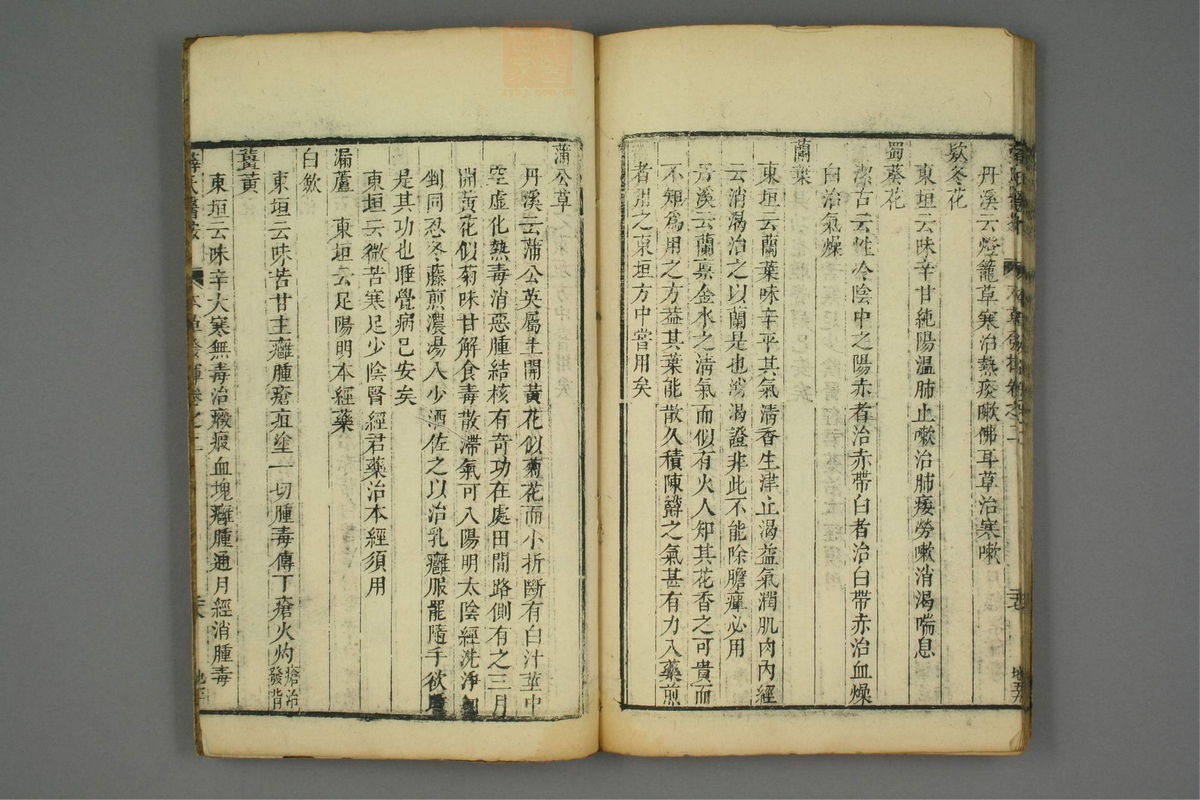 丹溪云燈籠草寒治熱痰嗽佛耳草治寒嗽
欵冬花
東垣云味辛甘純陽溫肺止嗽治肺痿勞嗽消渴喘息
蜀葵花
潔古云性冷陰中之陽赤者治赤帶白者治白帶赤治血燥
白治氣燥
蘭葉
東垣云蘭葉味辛平其氣清香生津止渴益氣潤肌肉內經
云消渴治之以蘭是也消渴證非此不能除膽癉必用
丹溪云蘭稟金水之清氣而似有火人知其花香之可貴而
不知爲用之方益其葉能散久積陳鬱之氣甚有力入藥煎
者用之東垣方中嘗用矣
蒲公草
丹溪云蒲公英屬土開黃花似菊花而小折斷有白汁莖中
空虛化熱毒消惡腫結核有奇功在處田間路側有之三月
開黃花似菊味甘解食毒散滯氣可入陽明太陰經洗淨細
剉同忍冬藤煎濃湯入少酒佐之以治乳癰服罷隨手欲睡
是其功也睡覺病已安矣
東垣云微苦寒足少陰腎經君藥治本經須用
漏蘆 東垣云足陽明本經藥
白歛
東垣云味苦甘主癰腫瘡疽塗一切腫毒傳丁瘡火灼瘡治發背
薑黃
東垣云味辛大寒無毒治癥瘕血塊癰腫通月經消腫毒
薛氏醫按 本草發揮卷之二